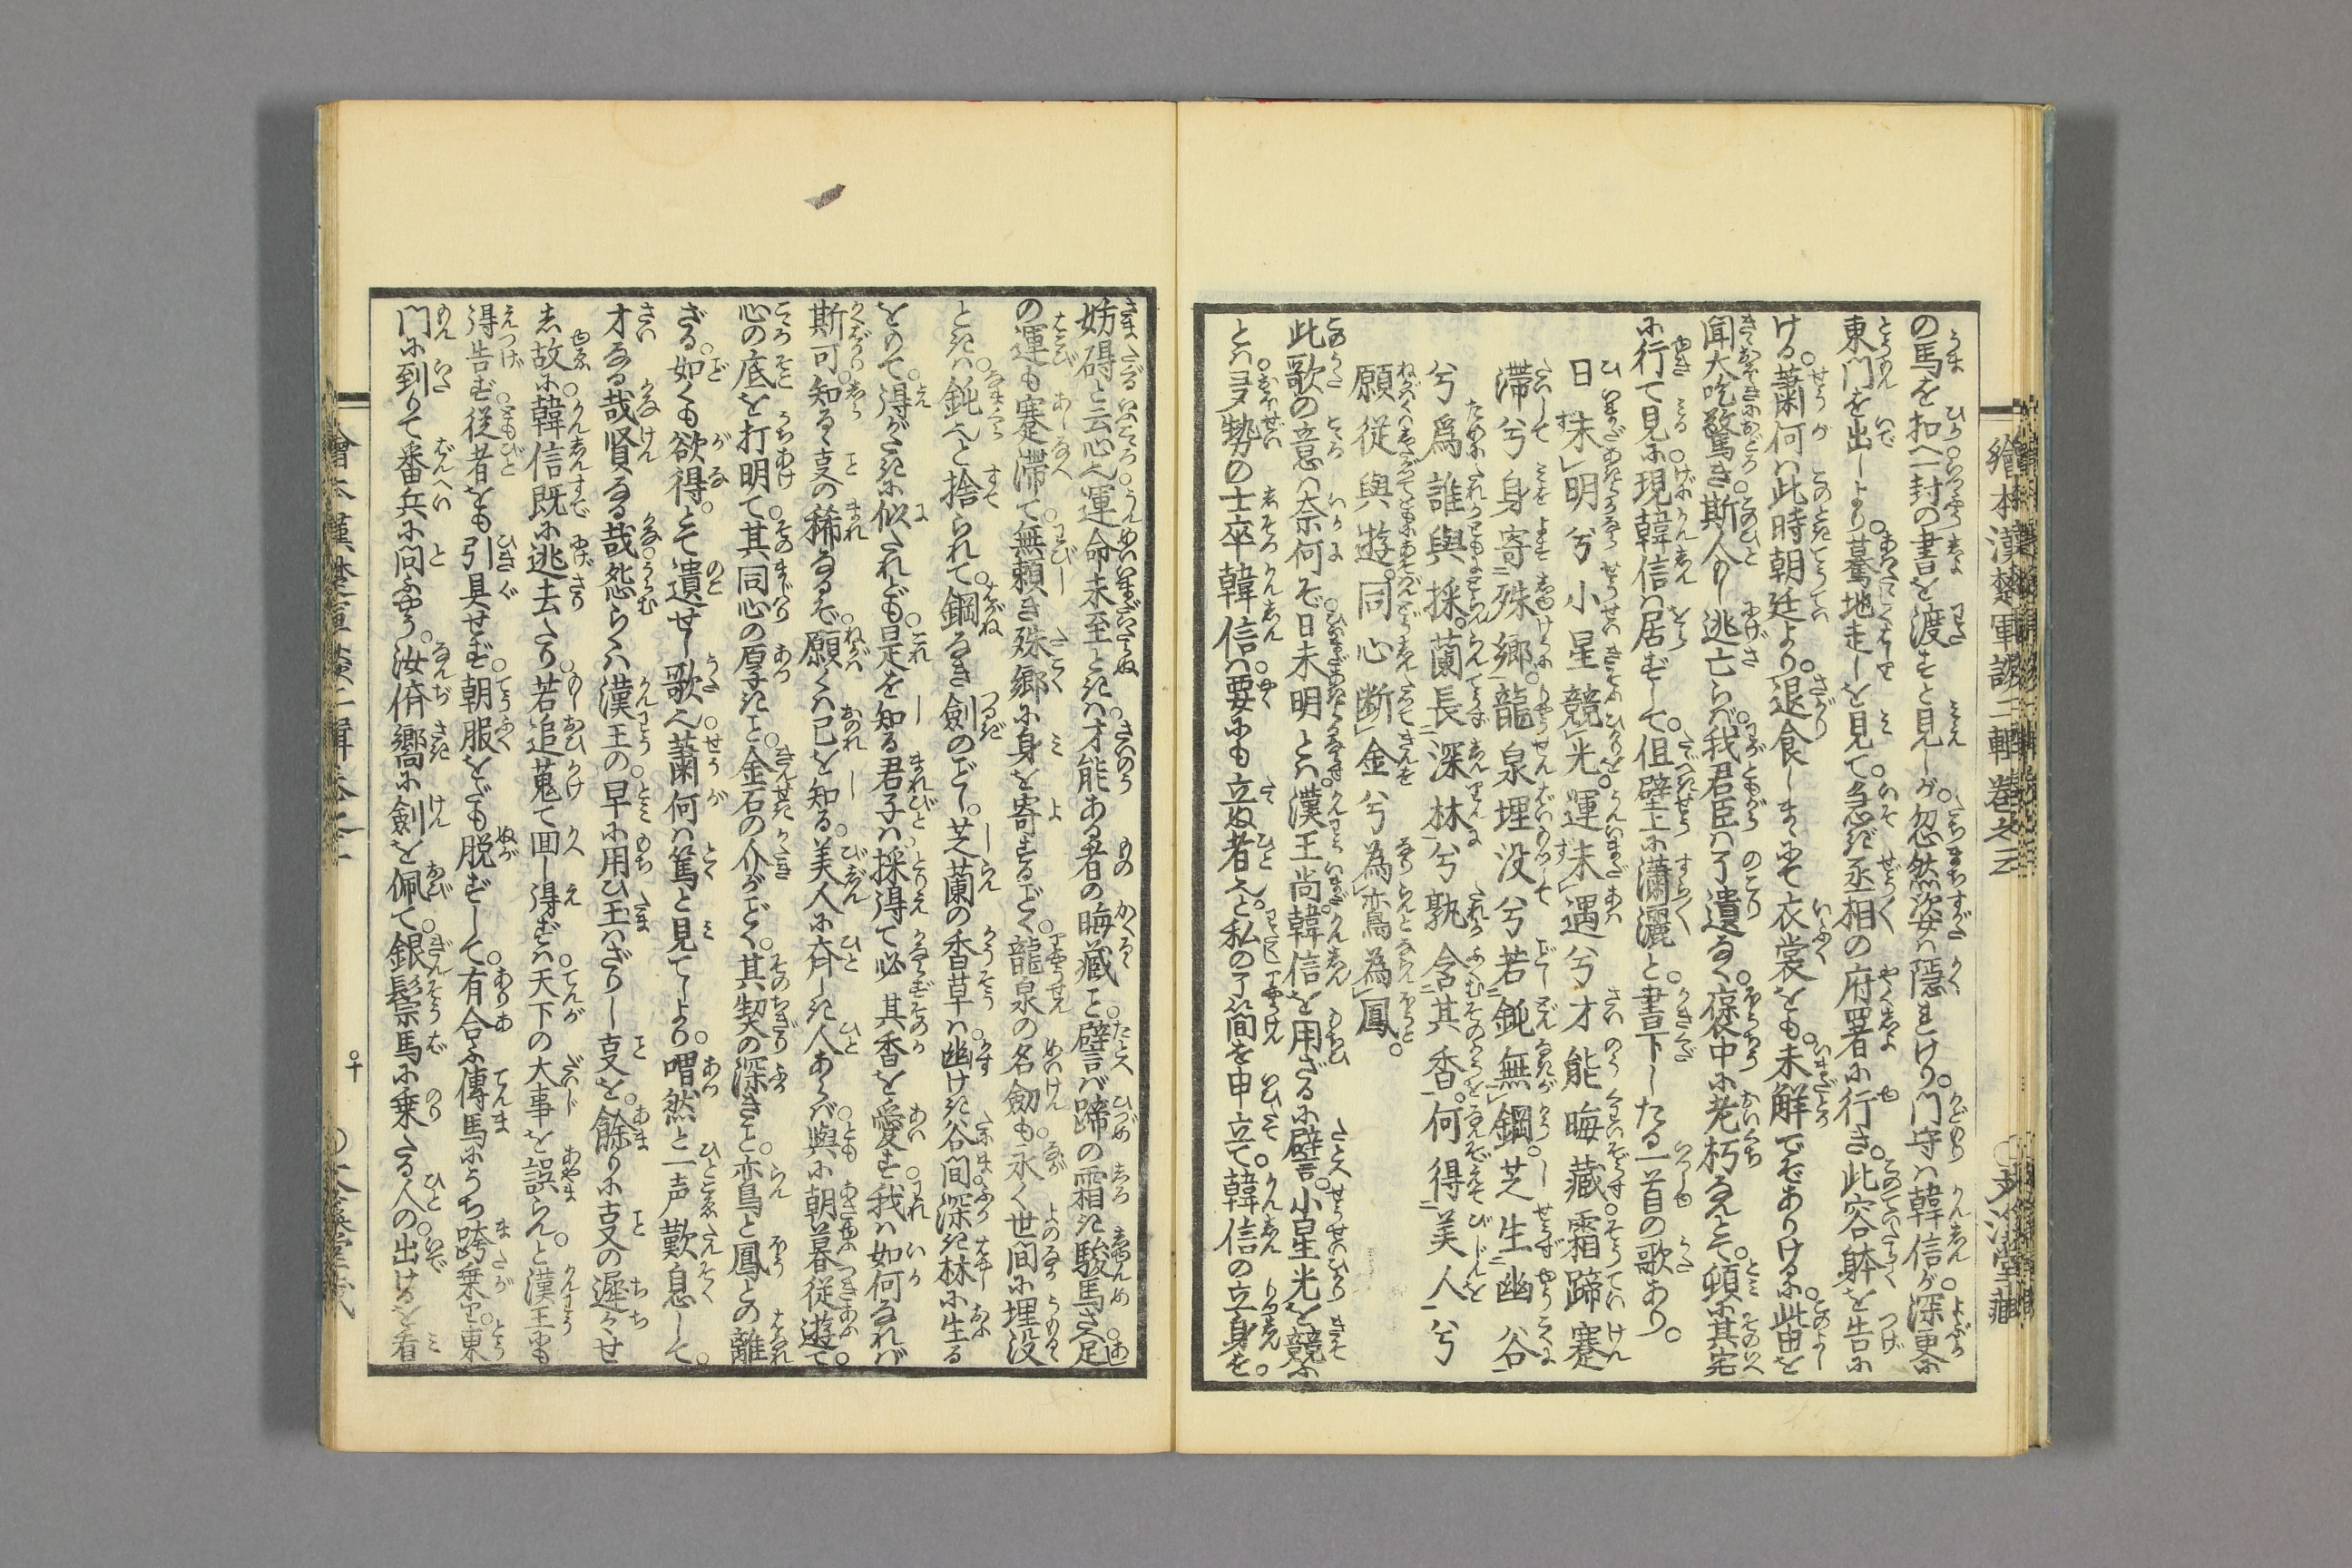 の馬を扣へ一封の書を渡すと見しが。忽然姿ハ隠れけり。門守ハ韓信が。深更に
東門を出しより。驀地走しを見て。急ぎ丞相の府署に行き。此容躰を告に
ける。蕭何ハ此時朝廷より。退食しまゝにて衣裳をも。未解でぞありけるに。此由を
聞大吃驚き。斯人もし逃亡らバ。我君臣ハ了遺なく。褒中に老朽なんとて。頓に其宅
に行て見に。現韓信ハ居ずして。但壁上に瀟灑と。書下したる一首の歌あり。
日未明兮小星競光。運未遇兮才能晦藏。霜蹄蹇
滞兮身寄殊郷。龍泉埋没兮若鈍無鋼。芝生幽谷
兮爲誰與採。蘭長深林兮孰含其香。何得美人兮
願從與遊。同心断金兮為鸞為鳳。
此歌の意ハ奈何ぞ。日未明とハ。漢王尚韓信を用ざるに譬。小星光を競ふ
とハ。ヨヌ勢の士卒韓信ハ。要にも立ぬ者と。私の了簡を申立て。韓信の立身を。
妨碍と云心。運命未至ときハ。才能ある者の晦藏と。譬バ蹄の霜き駿馬さへ。足
の運も蹇滞て。無頼き殊郷に身を寄するごとく。龍泉の名劒も。永く世間に埋没
ときハ。鈍と捨られて。鋼なき劍のごとし。芝蘭の香草ハ。幽けき谷間。深き林に生る
をのて。得がたきに似たれども。是を知る君子ハ。採得て必其香を愛す。我ハ如何なれバ
斯可。知るゝ事の稀なるぞ。願くハ己を知る。美人に斉しき人あらバ。與に朝暮従遊て。
心の底を打明て。其同心の厚きこと。金石の介がごとく。其契の深きこと。鸞鳥と鳳との離
ざる。如くも欲得。とて遺せし歌。蕭何ハ篤と見てしより。喟然と一声歎息して。
才なる哉賢なる哉。怨らくハ漢王の。早に用ひ玉ハざりし事を。餘りに事の遲々せ
し故に。韓信既に逃去たり。若追蒐て回し得ずハ。天下の大事を誤らん。と漢王にも
得告ず。従者をも引具せず。朝服をだも脱ずして。有合ふ傳馬にうち跨乗り。東
門に到りて番兵に問ふやう。汝侪嚮に劍を佩て。銀鬃馬に乗たる人の。出けるを看
繪本漢楚軍談二輯巻之三